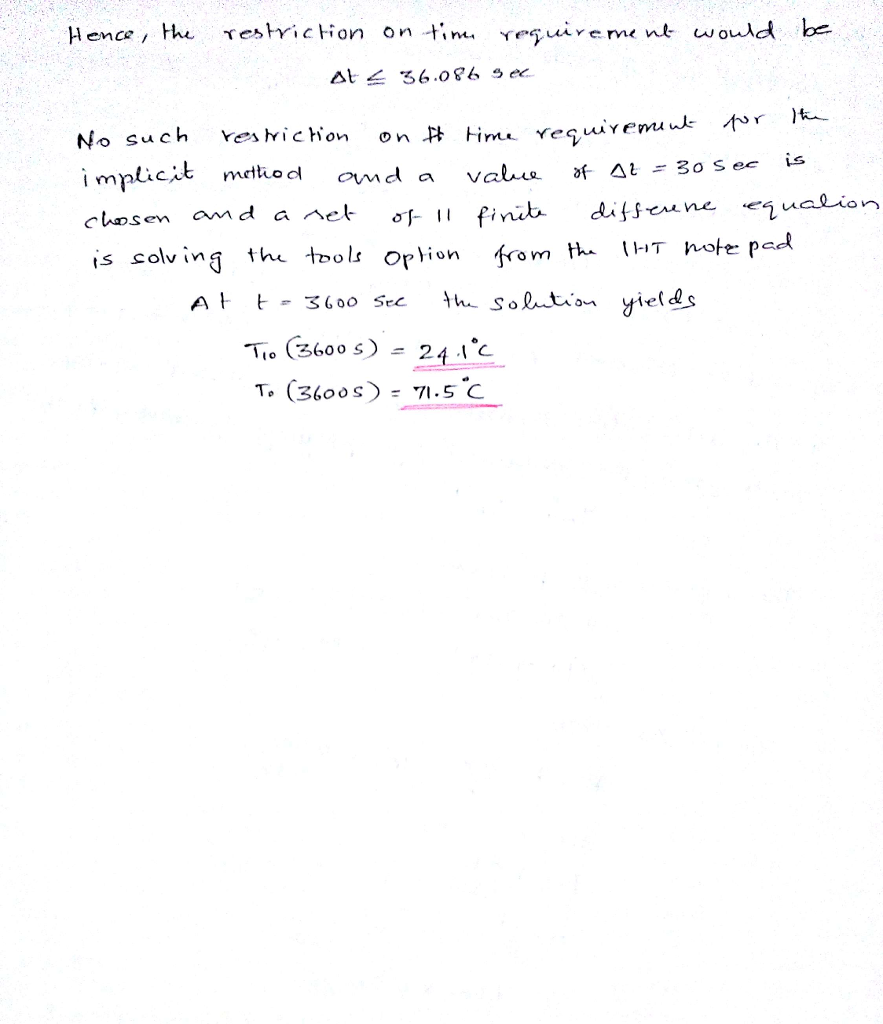 Hence, the restriction on time requirement would be
Δt ≤ 36.086 sec
No such restriction on time requirement for the
implicit method and a value of Δt = 30 sec is
chosen and a set of 11 finite differene equation
is solving the tools option from the IHT note pad
At t = 3600 sec the solution yields
T₁₀ (3600 s) = 24.1°C
T₀ (3600s) = 71.5°C